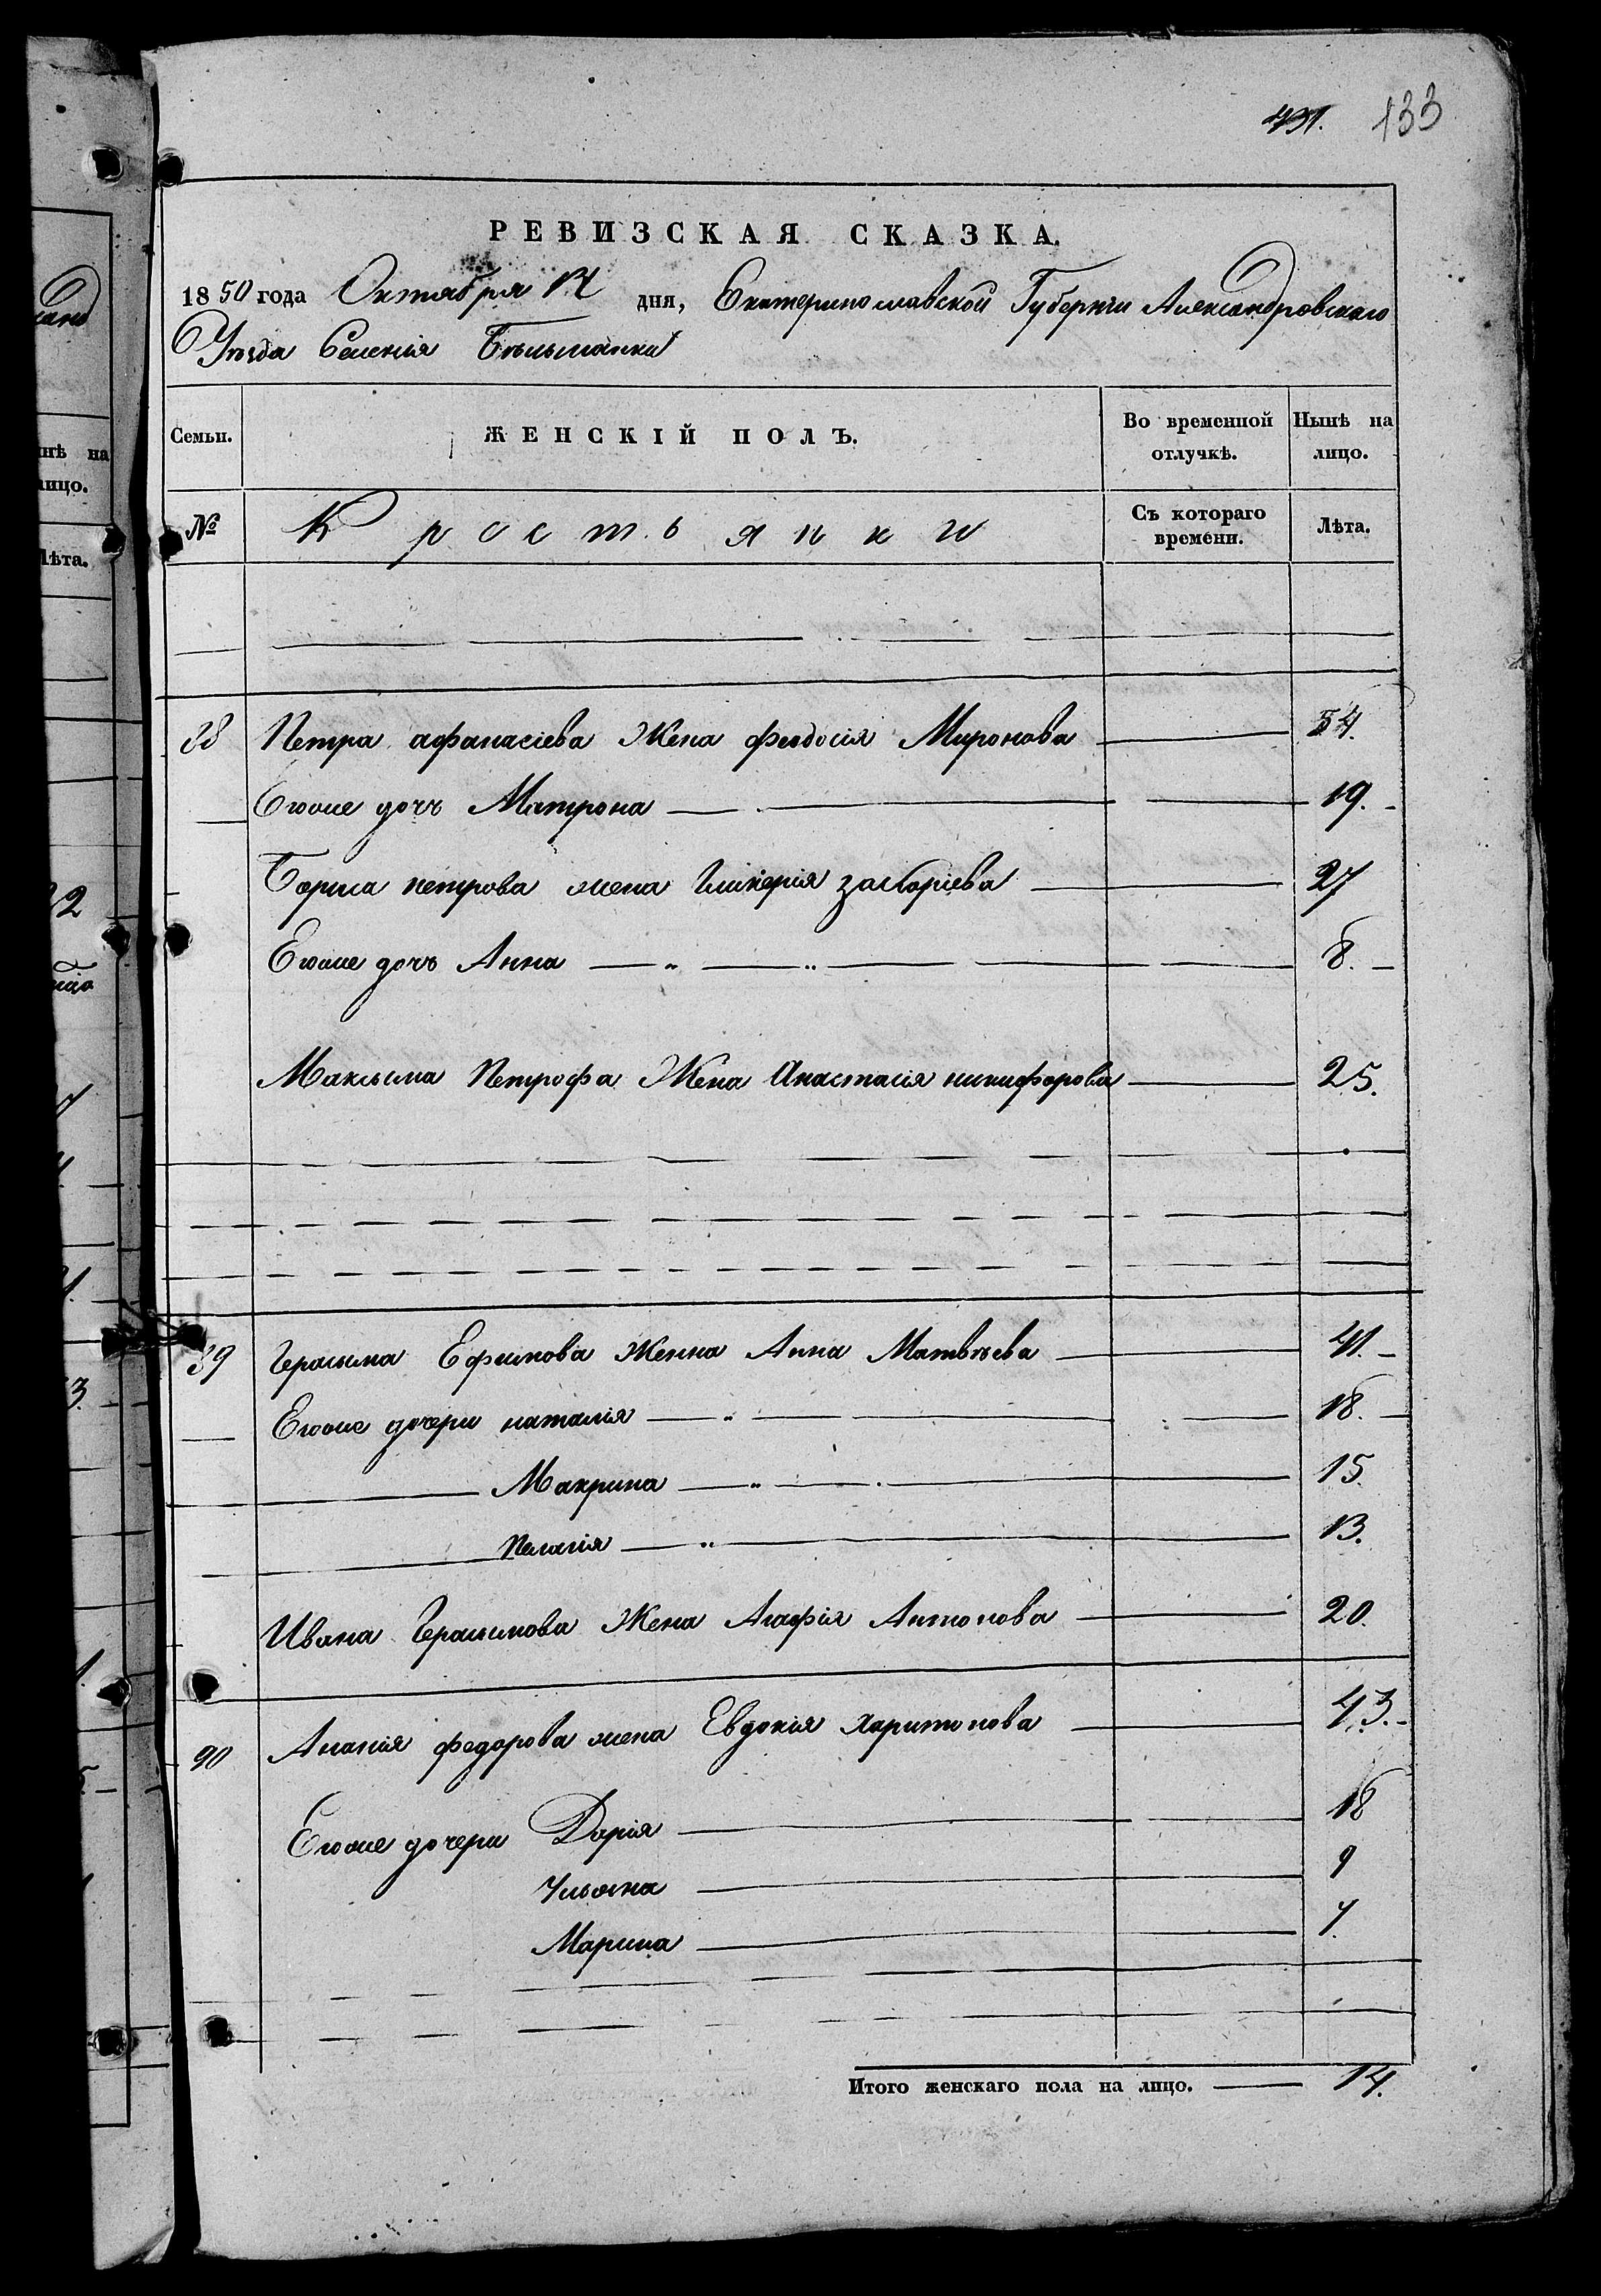 431. 133
РЕВИЗСКАЯ СКАЗКА.
1850 года Октября дня, Екатеринославской Губерніи Александровскаго
Уѣзда Селенія Бѣльманки
Семьи. ЖЕНСКІЙ ПОЛЪ. Во временной отлучкѣ. Нынѣ на лицо.
№ Крестьянки Съ котораго времени. Лѣта.
88 Петра афанасіева Жена феодосія Миронова 54.
Егоже дочь Матрона 19.
петрова жена Гликерія захаріева 27
Егоже дочь Анна 8.
Максыма Петрофа Жена Анастасія никифорова 25.
89 Герасыма Ефимова Женна Анна Матвѣева 41.
Егоже дочери наталія 18.
Макрина 15
Пелагія 13.
Ивана Герасимова Жена Агафія Антонова 20.
90 Ананія федорова жена Евдокія Харитонова 43.
Егоже дочери Дарія 18
Ульяна 9
Марина 7.
Итого женскаго пола на лицо. 14.